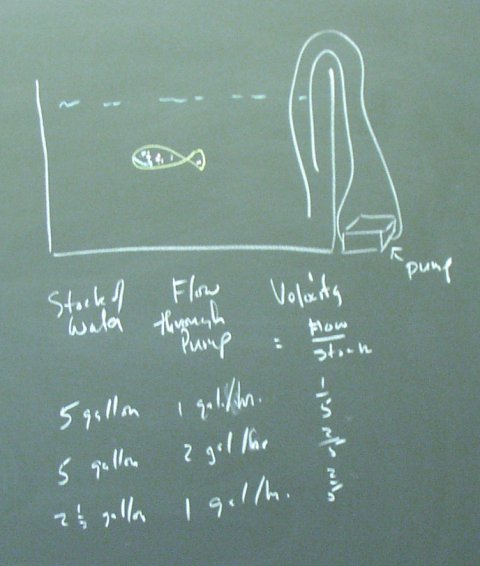 pump
Stock of Flow Velocity
Water through = Flow
Pump Stock
5 gallon 1 gal./hr. 1/5
5 gallon 2 gal/hr 2/5
2 1/2 gallon 1 gal/hr. 2/5